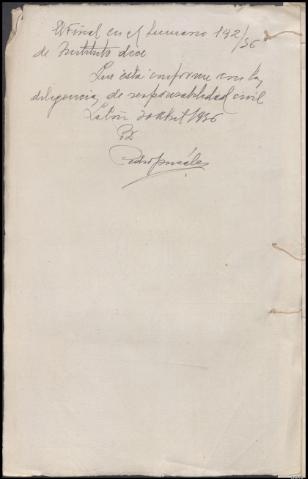 El Fiscal en el sumario 192/36
de Instituto dice
Que está conforme con la
diligencia de responsabilidad civil
30 Abril 1936
Pedro